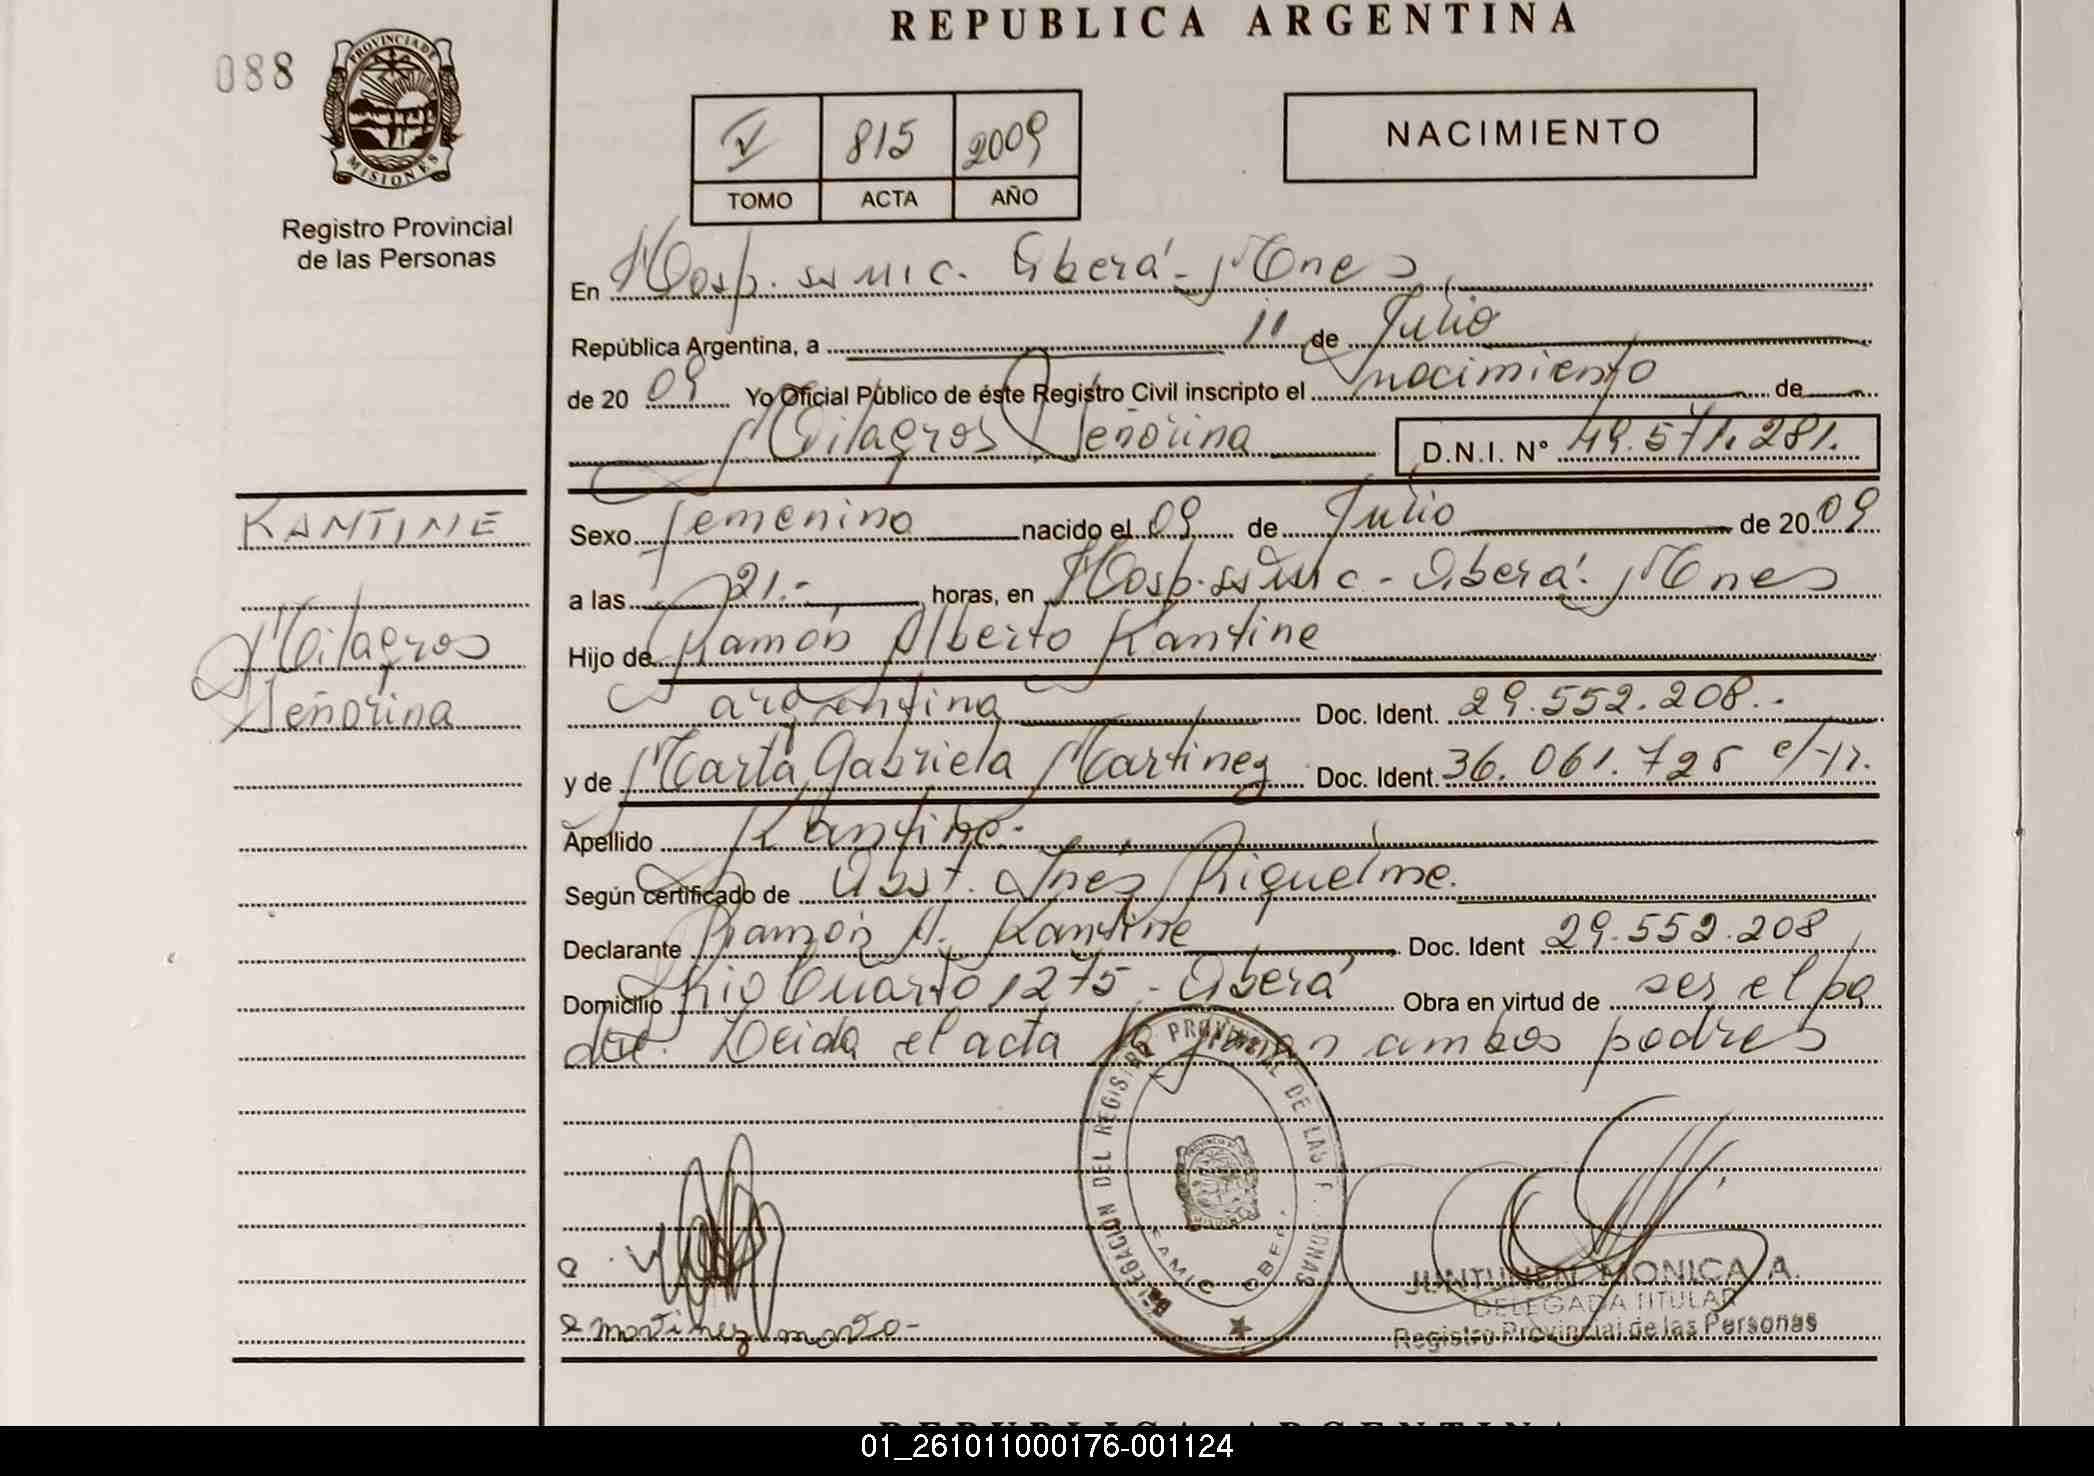 REPUBLICA ARGENTINA
088
PROVINCIA DE MISIONES
Registro Provincial
de las Personas
V 815 2009
TOMO ACTA AÑO
NACIMIENTO
En Hosp. ss mic. Oberá - Mnes
República Argentina, a 11 de Julio
de 20 09 Yo Oficial Público de éste Registro Civil inscripto el nacimiento de
Milagros Señorina D.N.I. N° 49.571.281.
KANTINE
Milagros
Señorina
Sexo femenino nacido el 09 de Julio de 20 09
a las 21.- horas, en Hosp. ss mic - Oberá. Mnes
Hijo de Ramón Alberto Kantine
argentina Doc. Ident. 29.552.208.-
y de Marta Gabriela Martinez Doc. Ident. 36.061.725
Apellido Kantine.
Según certificado de Obst. Inés Riquelme.
Declarante Ramón A. Kantine Doc. Ident 29.552.208
Domicilio Rio Cuarto 1275 - Oberá Obra en virtud de ser el pa
dre. Leida el acta la firman ambos padres
DELEGACIÓN DEL REGISTRO PROVINCIAL DE LAS PERSONAS
martinez marta-
JUNTUNEN MONICA A.
DELEGADA TITULAR
Registro Provincial de las Personas
REPUBLICA ARGENTINA
01_261011000176-001124